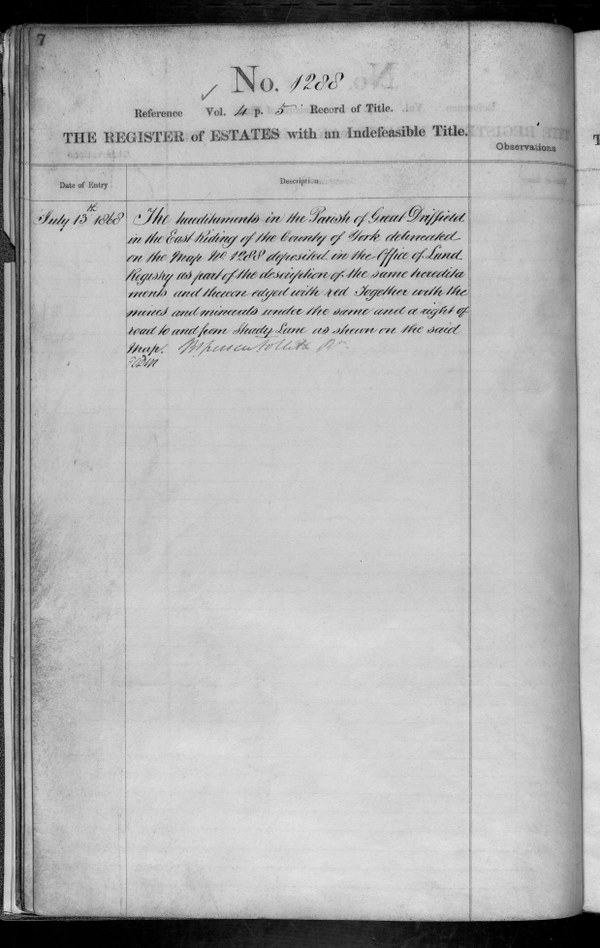 7
No. 1288
Reference Vol. 4 p. 5 Record of Title.
THE REGISTER of ESTATES with an Indefeasible Title.
Observations
Date of Entry
Description.
July 13th 1868
The hereditaments in the Parish of Great Driffield
in the East Riding of the County of York delineated
on the Map No 1288 deposited in the Office of Land
Registry as part of the description of the same heredita
ments and thereon edged with red Together with the
mines and minerals under the same and a right of
road to and from Shady Lane as shewn on the said
Map.